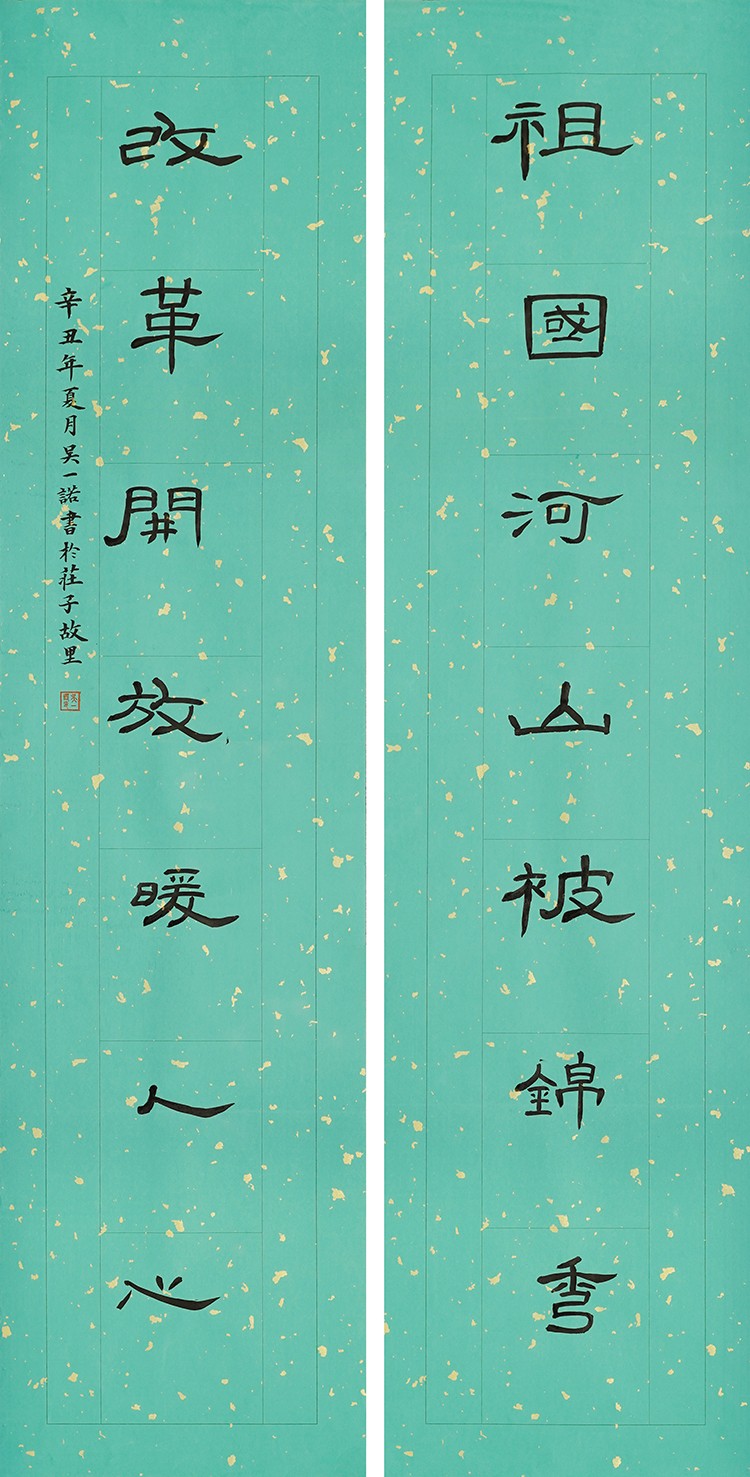 祖國河山被錦秀
改革開放暖人心
辛丑年夏月吴一諾書於莊子故里